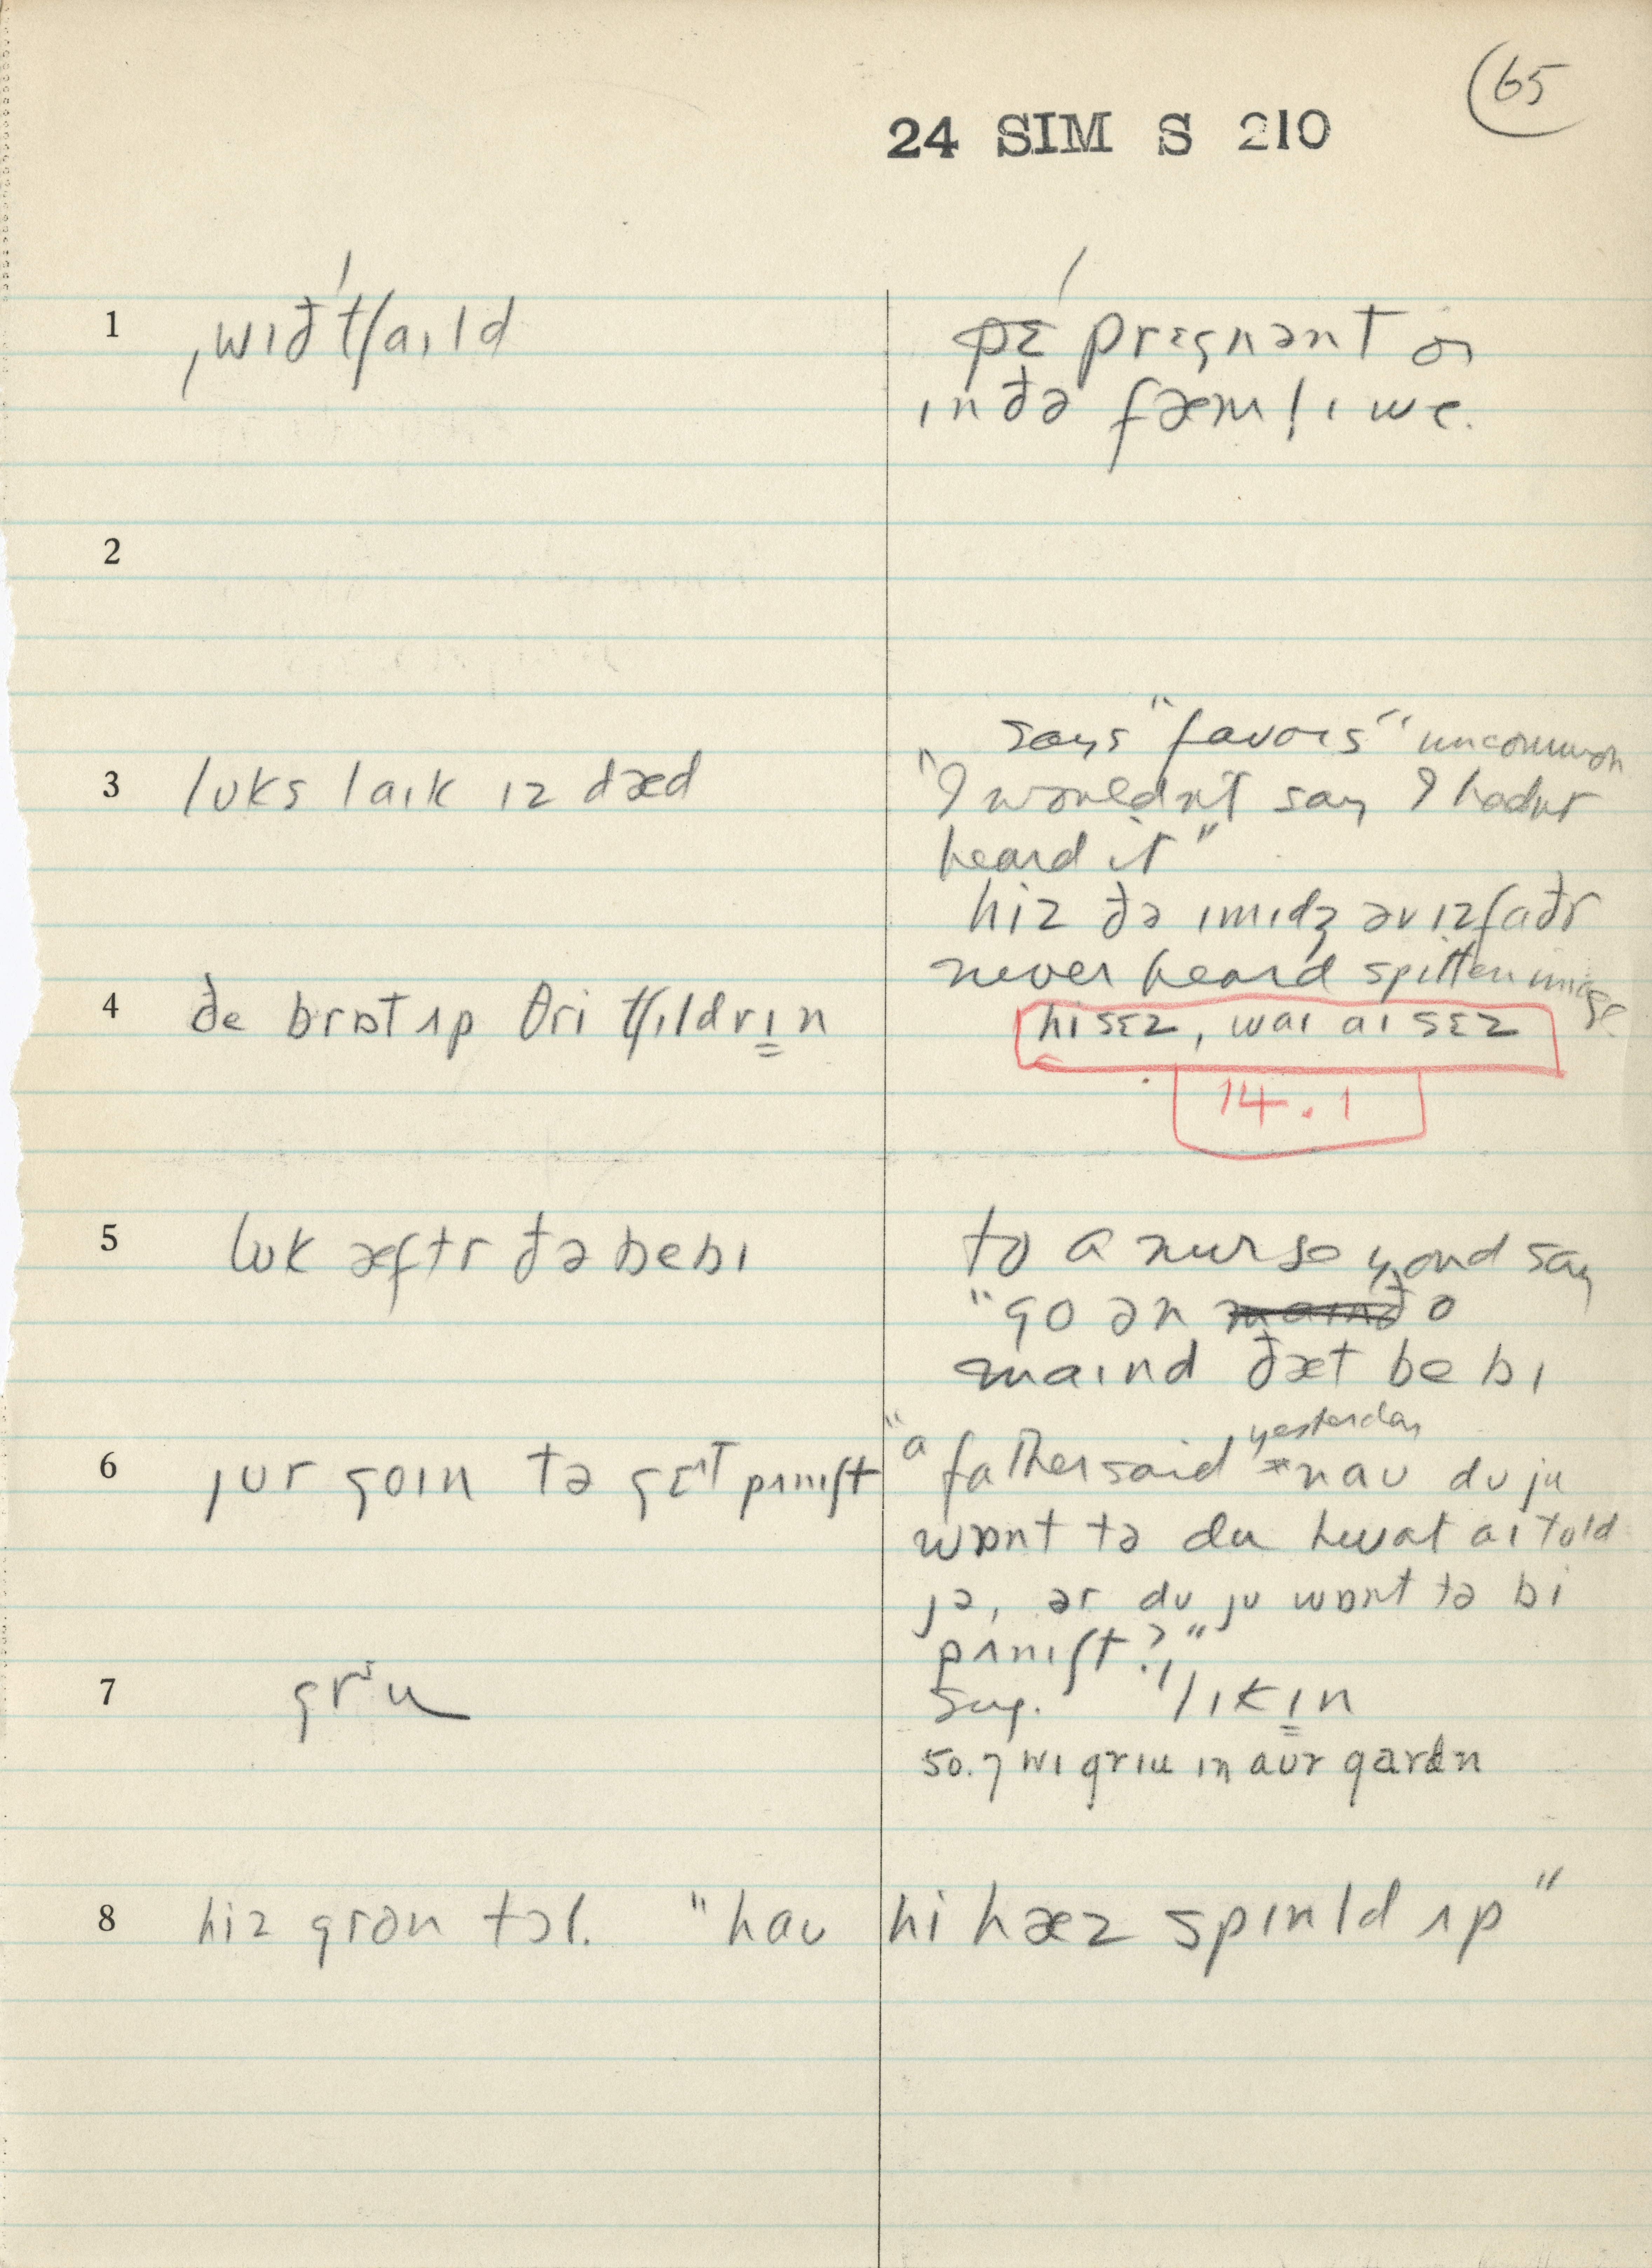 65
24 SIM S 210
1 ˌwɪð ˈtʃaɪld
pɛ prɛgnənt or
ɪn ðə fæml̩ɪ we.
2
says "favors" uncommon
3 lʊks laɪk ɪz dæd
"I wouldn't say I hadnt
heard it"
hiz ðə ɪmɪdʒ əv ɪz faðr
never heard spitten image
4 ðe brɒt ʌp θri tʃɪldrɪn
hi sɛz, waɪ aɪ sɛz
14.1
5 lʊk æftr ðə bebɪ
to a nurse yond say
"go ən maɪnd ðə
maɪnd ðæt bebɪ
6 jʊr goɪn tə gɛt pʌnɪʃt
"a father said yesterday *naʊ dʊ ju
wɒnt tə du hwat aɪ told
jə, ər dʊ jʊ wɒnt tə bi
pʌnɪʃt?"
7 grɪu
Sug. "lɪkɪn
50.7 wɪ grɪu ɪn aʊr gardn
8 hiz grən tɔl. "haʊ hi hæz spɪnld ʌp"